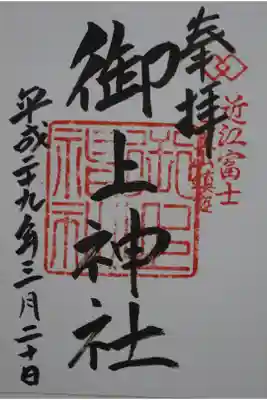 奉拝
近江富士
御上神社
平成二十九年三月二十日